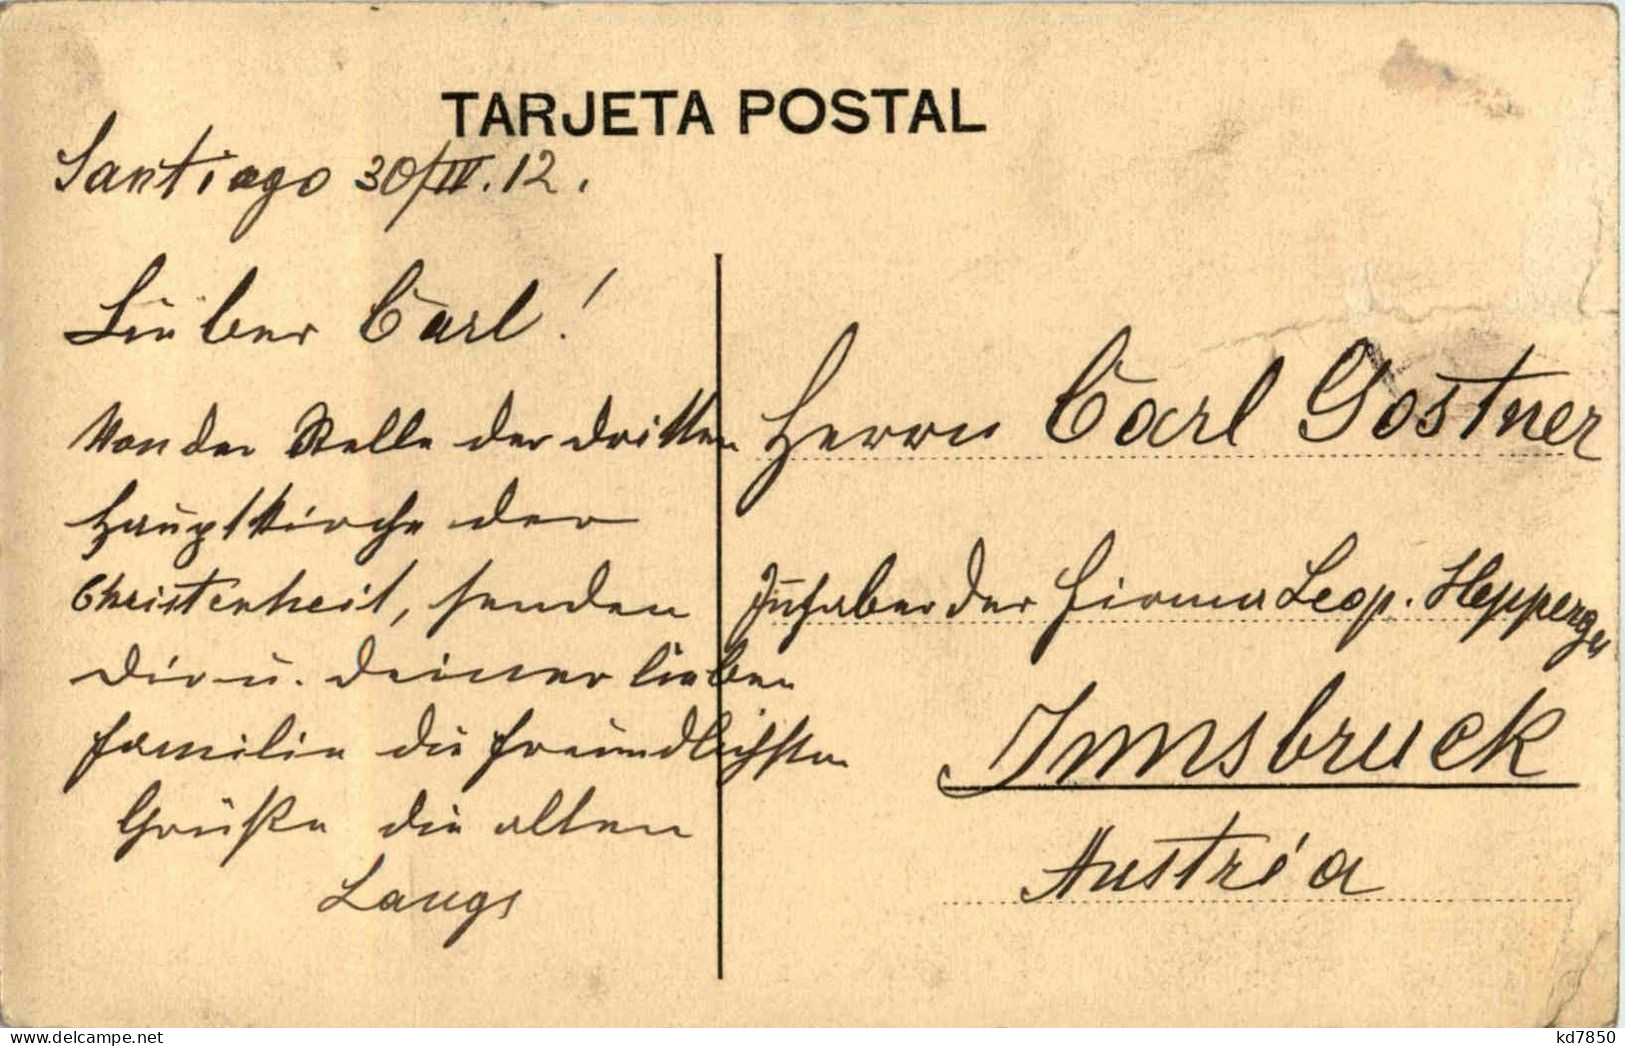 TARJETA POSTAL
Santiago 30/IV. 12.
Lieber Carl!
Von der Stelle der dritten
Hauptkirche der
Christenheit, senden
Dir u. deiner lieben
Familie die freundlichsten
Grüße die alten
Langs
Herrn Carl Gostner
Inhaber der Firma Leop. Hepperger
Innsbruck
Austria
kd7850